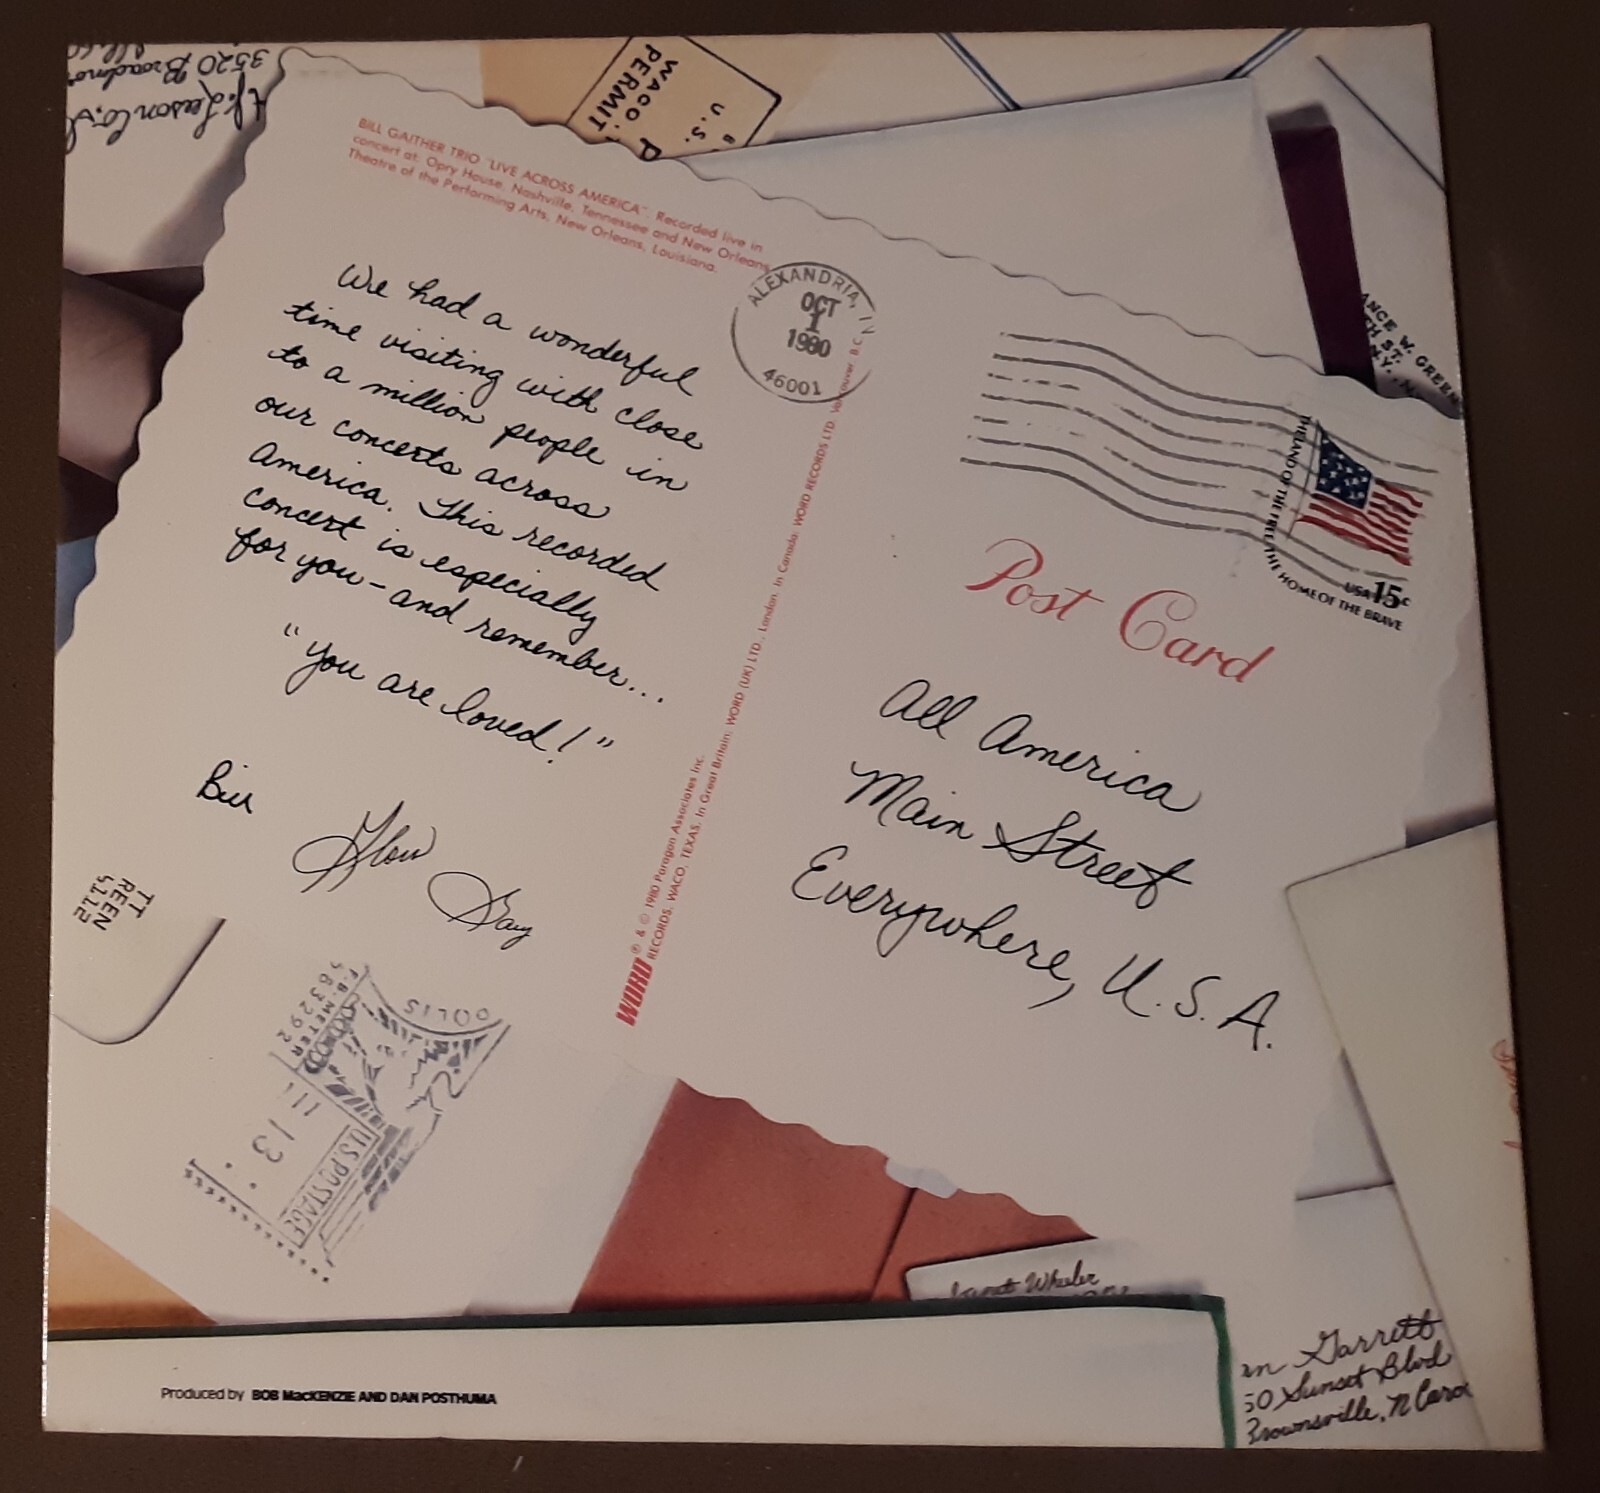 3520
WACO,
PERMIT
U.S. P
BILL GAITHER TRIO "LIVE ACROSS AMERICA". Recorded live in
concert at: Opry House, Nashville, Tennessee and New Orleans
Theatre of the Performing Arts, New Orleans, Louisiana.
We had a wonderful
time visiting with close
to a million people in
our concerts across
America. This recorded
concert is especially
for you - and remember...
"You are loved!"
Bill
Glori
Gary
ALEXANDRIA, IN
OCT
1
1980
46001
THE LAND OF THE FREE, THE HOME OF THE BRAVE
USA 15c
Post Card
All America
Main Street
Everywhere, U.S.A.
WORD ® & © 1980 Paragon Associates Inc.
RECORDS, WACO, TEXAS. In Great Britain: WORD (UK) LTD., London. In Canada: WORD RECORDS LTD. Vancouver B.C.
ANCE W. GREEN
TH ST.
N.Y., N.
TT
REEN
5112
OLIS
P.B. METER
563292
11 13
U.S. POSTAGE
Janet Wheeler
Garrett
50 Sunset Blvd
Brownsville, N Caro
Produced by BOB MacKENZIE AND DAN POSTHUMA